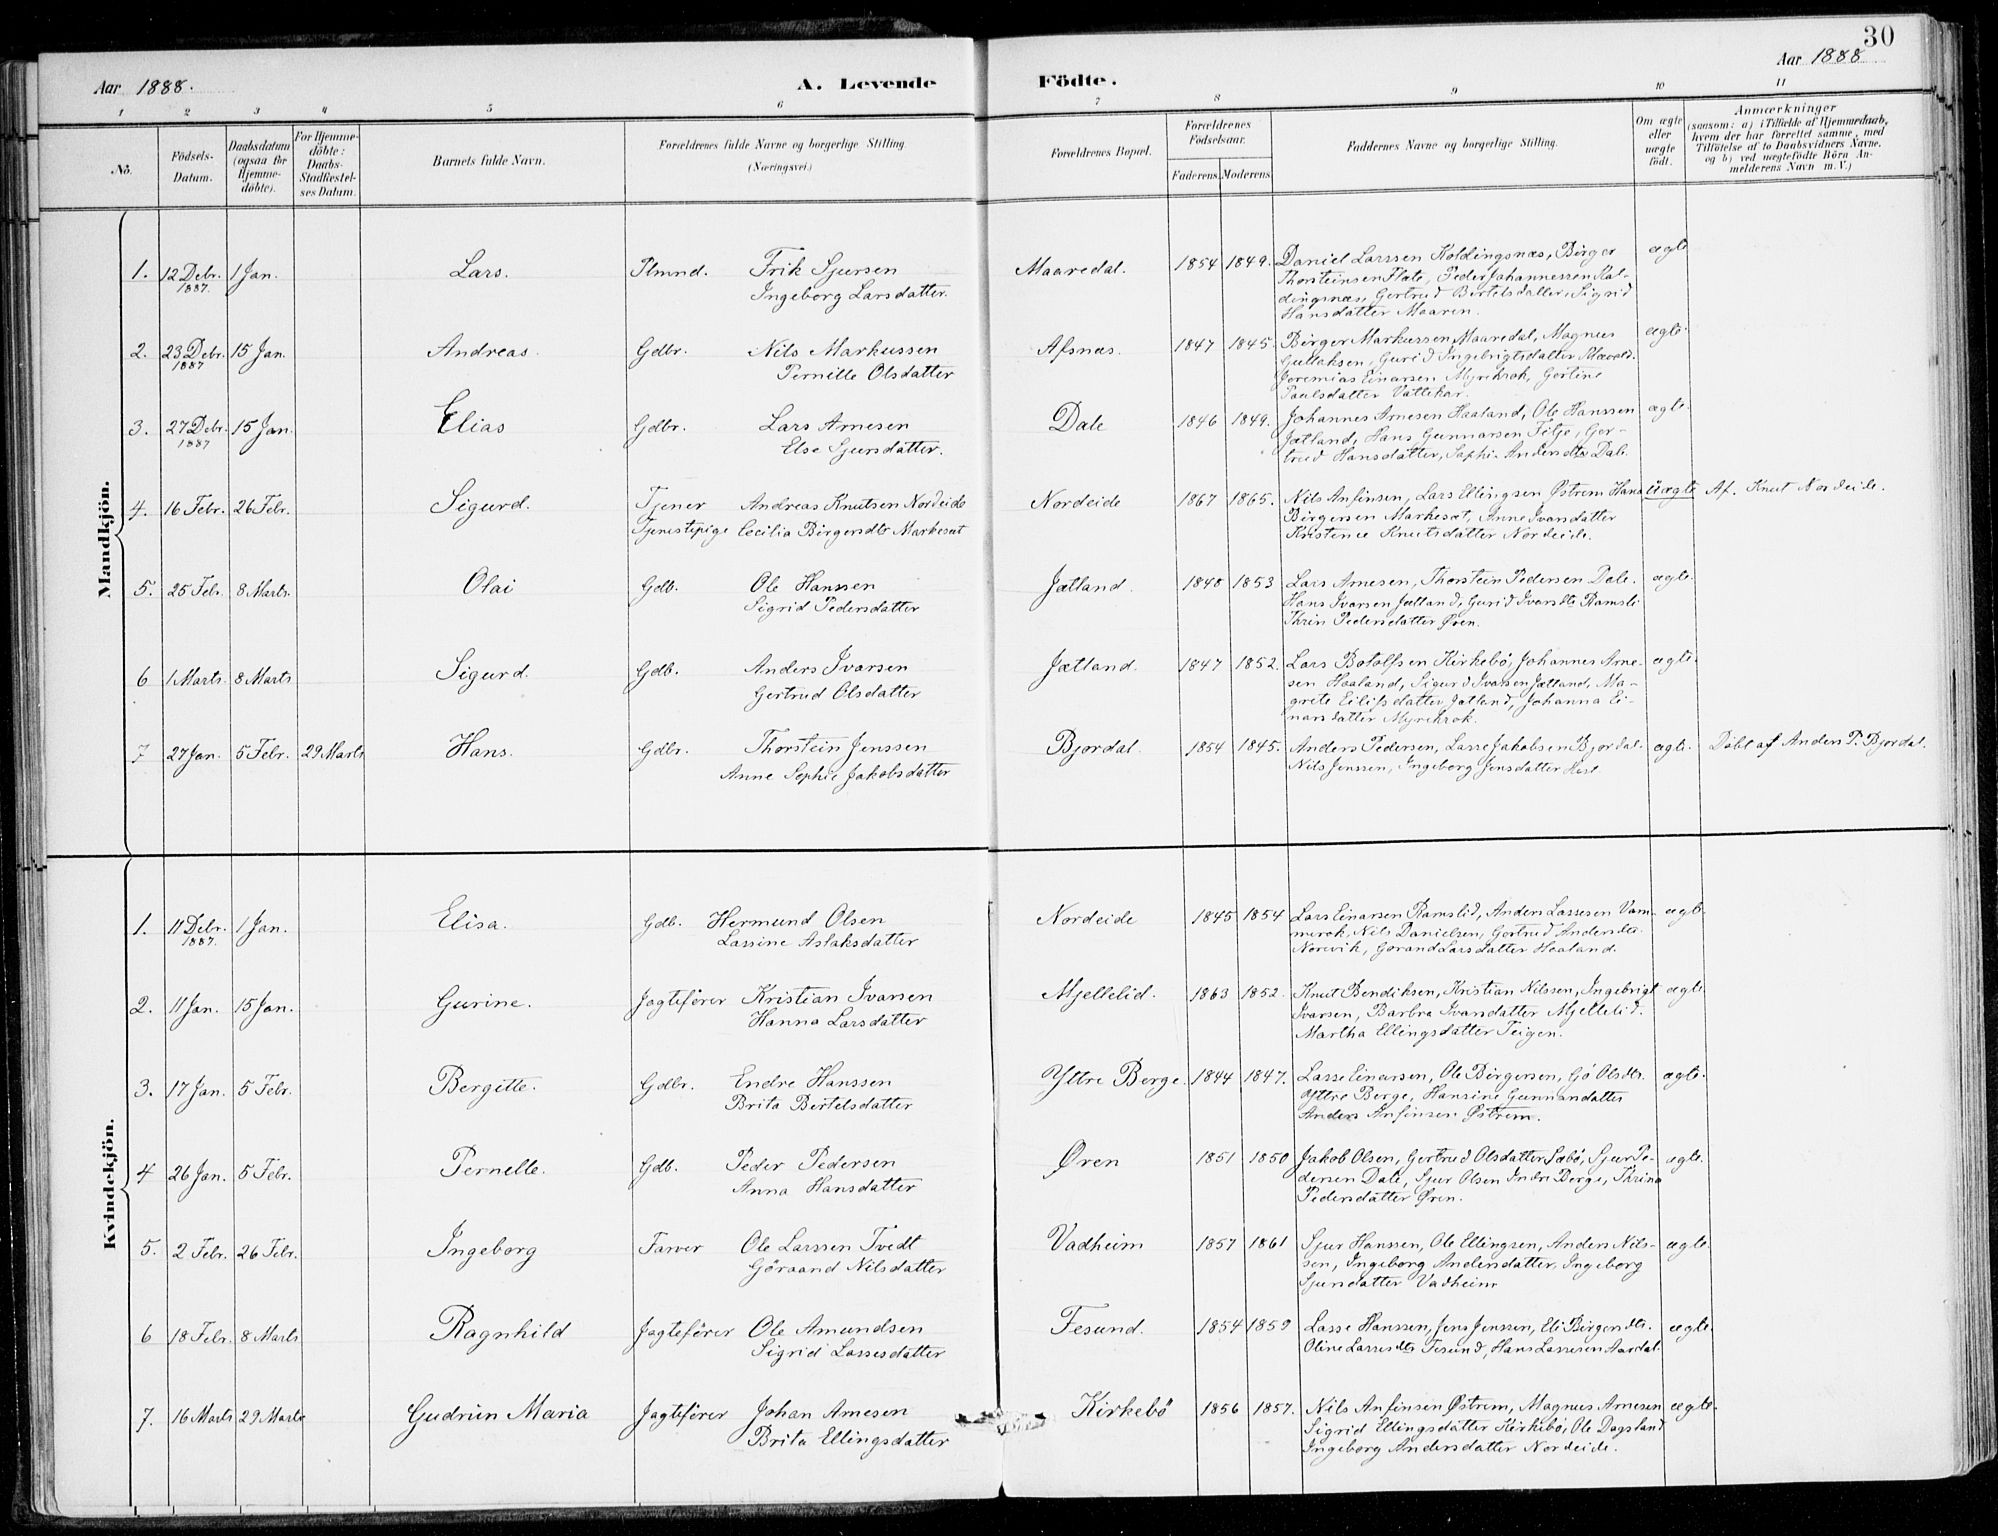 30
Aar 1888.
A. Levende Födte.
Aar 1888
1 2 3 4 5 6 7 8 9 10 11
No.
Födsels-Datum.
Daabsdatum (ogsaa for Hjemme-döbte).
For Hjemme-döbte: Daabs-Stadfæstelses Datum.
Barnets fulde Navn.
Forældrenes fulde Navne og borgerlige Stilling. (Næringsvei.)
Forældrenes Bopæl.
Forældrenes Födselsaar.
Faderens. Moderens.
Faddernes Navne og borgerlige Stilling.
Om ægte eller uægte födt.
Anmærkninger (saasom: a) i Tilfælde af Hjemmedaab, hvem der har forrettet samme, med Tilföielse af to Daabsvidners Navne. og b) ved uægtefödte Börn Anmelderens Navn m. V.)
Mandkjön.
1. 12 Debr. 1 Jan. Lars. Plmnd. Erik Sjursen Maaredal. 1854 1849. Daniel Larssen Koldingsnæs, Birger ægte
1887. Ingeborg Larsdatter. Thorsteinsen Flate, Peder Johannessen Kol-
dingsnæs, Gertrud Bertelsdatter, Sigrid
Hansdatter Maaren.
2. 23 Debr. 15 Jan. Andreas. Gdbr. Nils Markussen Afsnæs. 1847 1845. Birger Markussen Maaredal, Magnus ægte.
1887 Pernille Olsdatter Gullaksen, Gurid Ingebrigtsdatter
Jeremias Einarsen Myrekrok, Gertine
Paulsdatter Vattekar.
3. 27 Debr. 15 Jan. Elias Gdbr. Lars Arnesen Dale 1846 1849. Johannes Arnesen Haaland, Ole Hanssen ægte.
1887 Else Sjursdatter. Jætland, Hans Gunnarsen Fitje, Ger-
trud Hansdatter, Sophi. Andersdtr Dale.
4. 16 Febr. 26 Febr. Sigurd. Tjener Andreas Knutsen Nordeide Nordeide 1867 1865. Nils Anfinsen, Lars Ellingsen Østrem Hans Uægte Af. Knut Nordeide.
Tjenestepige Cecilia Birgersdtr Markeset Birgersen Markeset, Anne Ivarsdatter
Kristence Knutsdatter Nordeide.
5. 25 Febr. 8 Marts. Olai Gdb. Ole Hanssen Jætland. 1848 1853 Lars Arnesen, Thorstein Pedersen Dale. ægte.
Sigrid Pedersdatter Hans Ivarsen Jætland, Gurid Ivarsdtr Ramsli
Thrin Pedersdatter Øren.
6 1 Marts. 8 Marts Sigurd. Gdb. Anders Ivarsen Jætland. 1847 1852. Lars Botolfsen Kirkebö, Johannes Arne- ægte.
Gertrud Olsdatter sen Haaland, Sigurd Ivarsen Jætland, Ma-
grete Eilifsdatter Jætland, Johanna Ei-
narsdatter Myrekrok.
7 27 Jan. 5 Febr. 29 Marts Hans. Gdbr. Thorstein Jenssen Bjordal. 1854 1845. Anders Pedersen, Lasse Jakobsen Bjordal. ægte. Döbt af Anders P. Bjordal.
Anne Sophie Jakobsdatter Nils Jenssen, Ingeborg Jensdatter
Kvindekjön.
1. 11 Debr. 1 Jan. Elisa. Gdb. Hermund Olsen Nordeide 1845 1854 Lars Einarsen Ramslid, Anders Lassesen Vam- ægte
1887. Lassine Aslaksdatter merok Nils Danielsen, Gertrud Andersdtr.
Norevik, Gorand Larsdatter Haaland.
2. 11 Jan. 15 Jan. Gurine. Jagteförer Kristian Ivarsen Mjellelid. 1863 1852. Knut Bendiksen, Kristian Nilssen, Ingebrigt ægte
Hanna Larsdatter Ivarsen, Barbra Ivarsdatter Mjellelid.
Martha Ellingsdatter Teigen.
3. 17 Jan. 5 Febr. Bergitte. Gdbr. Endre Hanssen Yttre Berge. 1844 1847. Lasse Einarsen, Ole Birgersen, Gjö Olsdtr. ægte.
Brita Bertelsdatter Yttre Berge, Hansine Gunnarsdatter
Anders Anfinsen Østrem.
4 26 Jan. 5 Febr. Pernelle. Gdb. Peder Pedersen Øren 1851 1850 Jakob Olsen, Gertrud Olsdatter Sæbö, Sjur Pe- ægte.
Anna Hansdatter dersen Dale, Sjur Olsen Indre Berge, Thrina
Pedersdatter Øren.
5. 2 Febr. 26 Febr. Ingeborg Farver Ole Larssen Tvedt Vadheim 1857 1861 Sjur Hanssen, Ole Ellingsen, Anders Nils- ægte.
Göraand Nilsdatter sen, Ingeborg Andersdatter, Ingeborg
Sjursdatter Vadheim
6 18 Febr. 8 Marts Ragnhild Jagteförer Ole Amundsen Fesund. 1854 1859 Lasse Hanssen, Jens Jenssen, Eli Birgersdtr. ægte.
Sigrid Lassesdatter Oline Lassesdtr Fesund, Hans Lassesen Aardal
7. 16 Marts 29 Marts Gudrun Maria Jagtefórer Johan Arnesen Kirkebö 1856 1857. Nils Anfinsen Østrem, Magnus Arnesen ægte.
Brita Ellingsdatter Sigrid Ellingsdatter Kirkebö, Ole Dagsland
Ingeborg Andersdatter Nordeide.